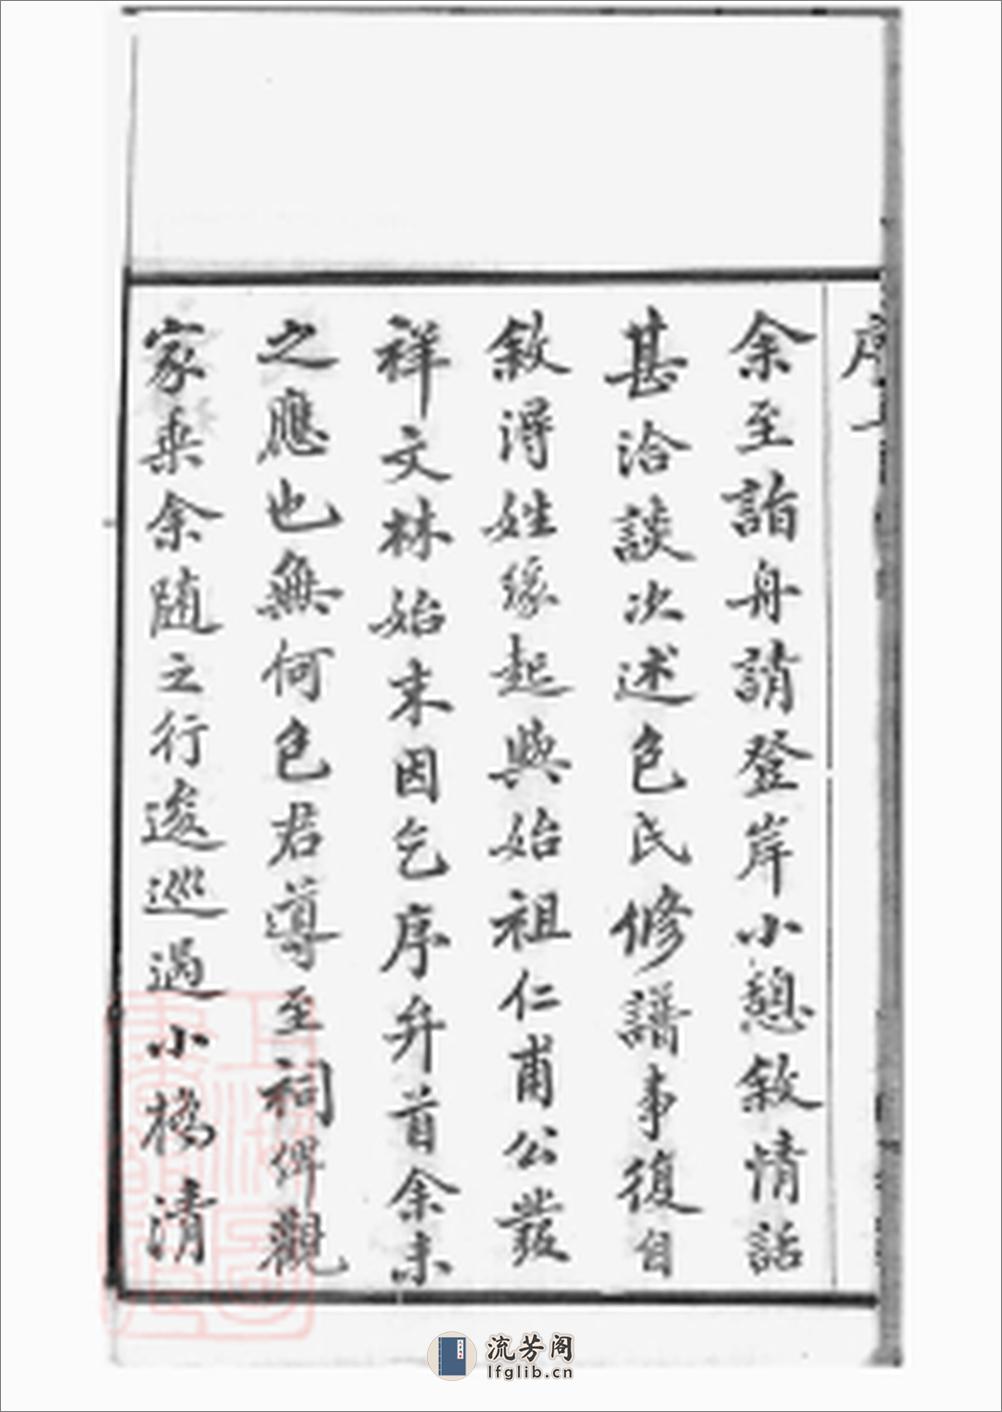 序
余至詣舟請登岸小憩敘情話
甚洽談次述色氏修譜事復自
敘得姓緣起與始祖仁甫公發
祥文林始末因乞序弁首余未
之應也無何色君導至祠俾觀
家乘余隨之行逡巡過小橋清
流芳阁
lfglib.cn